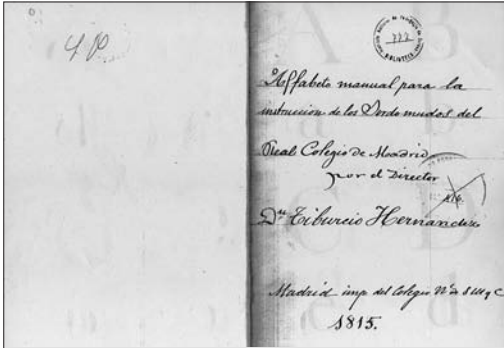 Alfabeto manual para la
instruccion de los Sordo mudos del
Real Colegio de Madrid
por el Director
Dn Tiburcio Hernandez
Madrid imp del Colegio
1815.